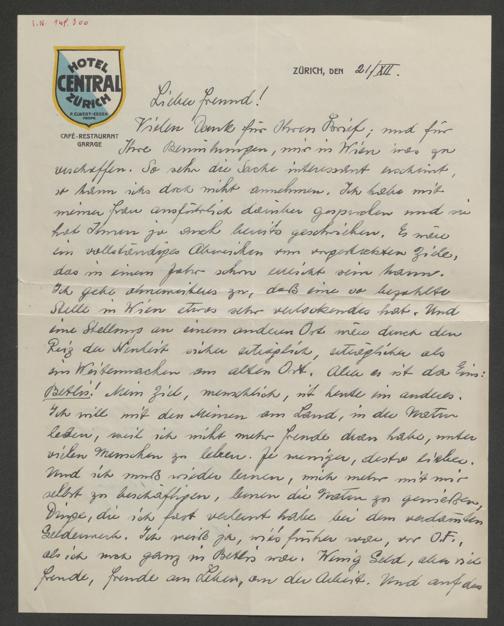 I.N. 149.300
HOTEL
CENTRAL
ZÜRICH
CAFÉ-RESTAURANT
GARAGE
ZÜRICH, DEN 21/XII.
Lieber Freund!
Vielen Dank für Ihren Brief; und für
Ihre Bemühungen, mir in Wien was zu
verschaffen. So sehr die Sache interessant erscheint,
so kann ichs doch nicht annehmen. Ich habe mit
meiner Frau ausführlich darüber gesprochen und sie
hat Ihnen ja auch bereits geschrieben. Es wäre
ein vollständiges Abweichen vom vorgesteckten Ziele,
das in einem Jahr schon erreicht sein kann.
Ich gebe ohneweiteres zu, daß eine so bezahlte
Stelle in Wien etwas sehr verlockendes hat. Und
eine Stellung an einem anderen Ort wäre durch den
Reiz der Neuheit sicher erträglich, erträglicher als
ein Weitermachen am alten Ort. Aber es ist da Eins:
Betlis! Mein Ziel, menschlich, ist heute ein anderes.
Ich will mit den Meinen am Land, in der Natur
leben, weil ich nicht mehr Freude dran habe, unter
vielen Menschen zu leben. Je weniger, desto lieber.
Und ich muß wieder lernen, mich mehr mit mir
selbst zu beschäftigen, lernen die Natur zu genießen,
Dinge, die ich fast verlernt habe bei dem verdammten
Gelderwerb. Ich weiß ja, wies früher war, vor O.F.,
als ich noch ganz in Betlis war. Wenig Geld, aber viel
Freude, Freude am Leben, an der Arbeit. Und auf das